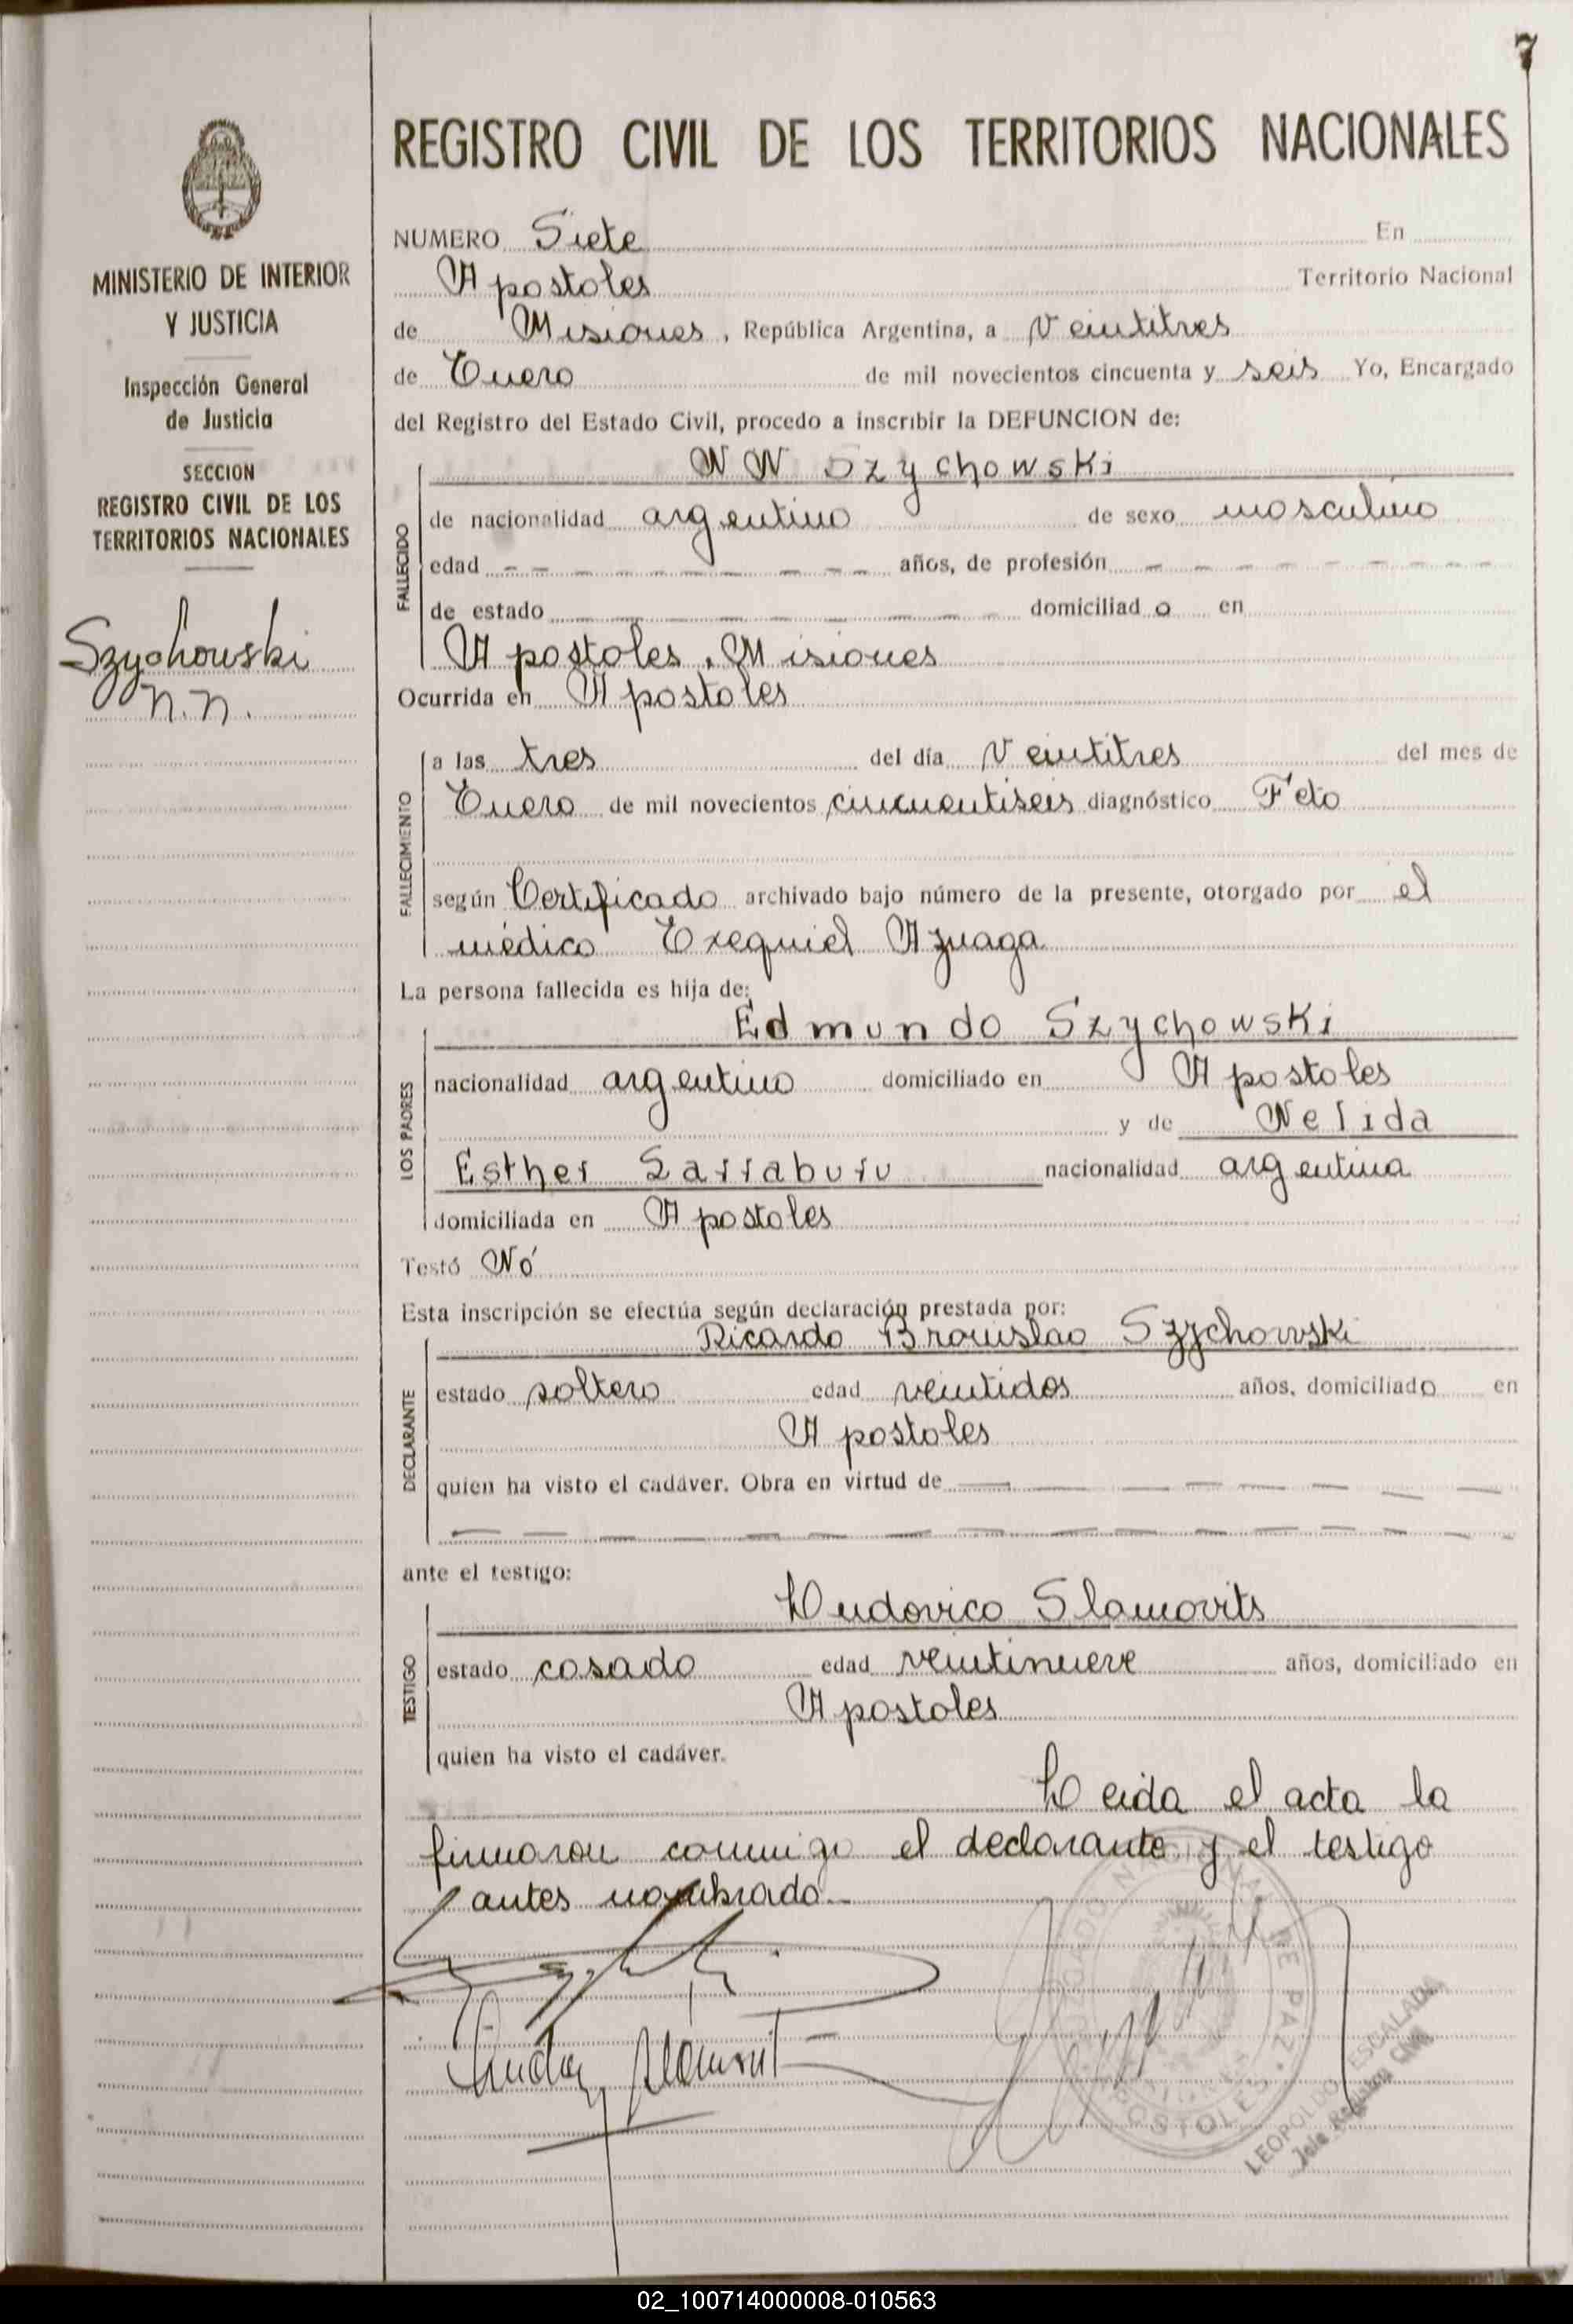 7
REGISTRO CIVIL DE LOS TERRITORIOS NACIONALES
MINISTERIO DE INTERIOR
Y JUSTICIA
Inspección General
de Justicia
SECCION
REGISTRO CIVIL DE LOS
TERRITORIOS NACIONALES
Szychowski
n.n.
NUMERO Siete En
Apostoles Territorio Nacional
de Misiones, República Argentina, a Veintitres
de Enero de mil novecientos cincuenta y seis Yo, Encargado
del Registro del Estado Civil, procedo a inscribir la DEFUNCION de:
N N Szychowski
FALLECIDO
de nacionalidad argentino de sexo masculino
edad años, de profesión
de estado domiciliado en
Apostoles, Misiones
Ocurrida en Apostoles
FALLECIMIENTO
a las tres del día Veintitres del mes de
Enero de mil novecientos cincuentiseis diagnóstico Feto
según Certificado archivado bajo número de la presente, otorgado por el
médico Exequiel Azuaga
La persona fallecida es hija de:
LOS PADRES
Edmundo Szychowski
nacionalidad argentino domiciliado en Apostoles
y de Nelida
Esther Larraburu nacionalidad argentina
domiciliada en Apostoles
Testó Nó
Esta inscripción se efectúa según declaración prestada por:
DECLARANTE
Ricardo Bronislao Szychowski
estado soltero edad veintidos años, domiciliado en
Apostoles
quien ha visto el cadáver. Obra en virtud de
ante el testigo:
TESTIGO
Ludovico Slamovits
estado casado edad veintinueve años, domiciliado en
Apostoles
quien ha visto el cadáver.
Leida el acta la
firmaron conmigo el declarante y el testigo
antes nombrado.
JUZGADO NACIONAL DE PAZ
APOSTOLES
LEOPOLDO ESCALADA
Jefe Registro Civil
02_100714000008-010563